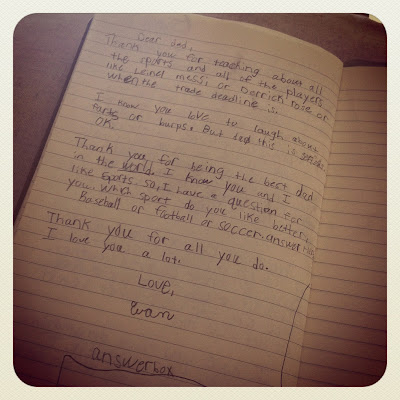 Dear dad,
Thank you for teaching about all
the sports and all of the players
like Leinel messi or Derrick rose or
when the trade deadline is.
I know you love to laugh about
farts or burps. But dad this is serious
OK.
Thank you for being the best dad
in the world. I know you and I
like sports. so, I have a question for
you. which sport do you like better,
Baseball or football or soccer. answer
Thank you for all you do.
I love you a lot.
Love,
Evan
answerbox